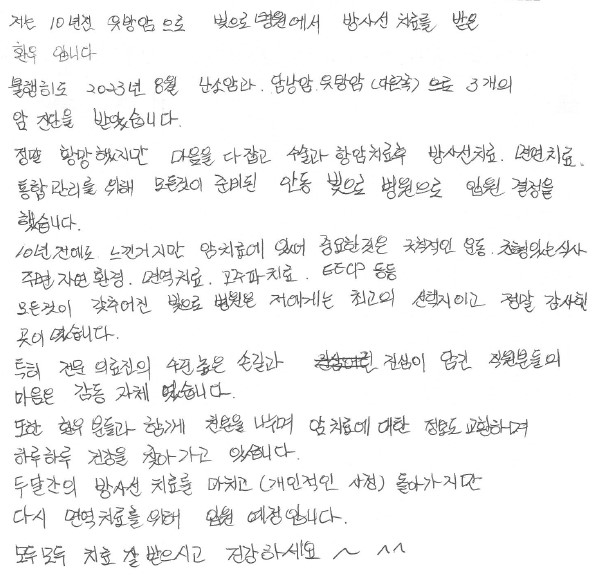 저는 10년전 유방암으로 빛으로 병원에서 방사선 치료를 받은
환우 입니다
불행히도 2023년 8월 난소암과. 담낭암. 유방암 (다른쪽) 으로 3개의
암 진단을 받았습니다.
정말 황망했지만 마음을 다잡고 수술과 항암치료후 방사선치료. 면역치료.
통합관리를 위해 모든것이 준비된 안동 빛으로 병원으로 입원 결정을
했습니다.
10년전에도 느낀거지만 암치료에 있어 중요한것은 규칙적인 운동. 균형있는식사
주변 자연환경. 면역치료. 고주파치료. EECP 등등
모든것이 갖추어진 빛으로 병원은 저에게는 최고의 선택지이고 정말 감사한
곳이 였습니다.
특히 전문 의료진의 수준높은 손길과 진심이 담긴 직원분들의
마음은 감동 자체 였습니다.
또한 환우 분들과 함께 친분을 나누며 암치료에 대한 정보도 교환하며
하루하루 건강을 찾아가고 있습니다.
두달간의 방사선 치료를 마치고 (개인적인 사정) 돌아가지만
다시 면역치료를위해 입원 예정입니다.
모두모두 치료 잘 받으시고 건강하세요 ~ ^^